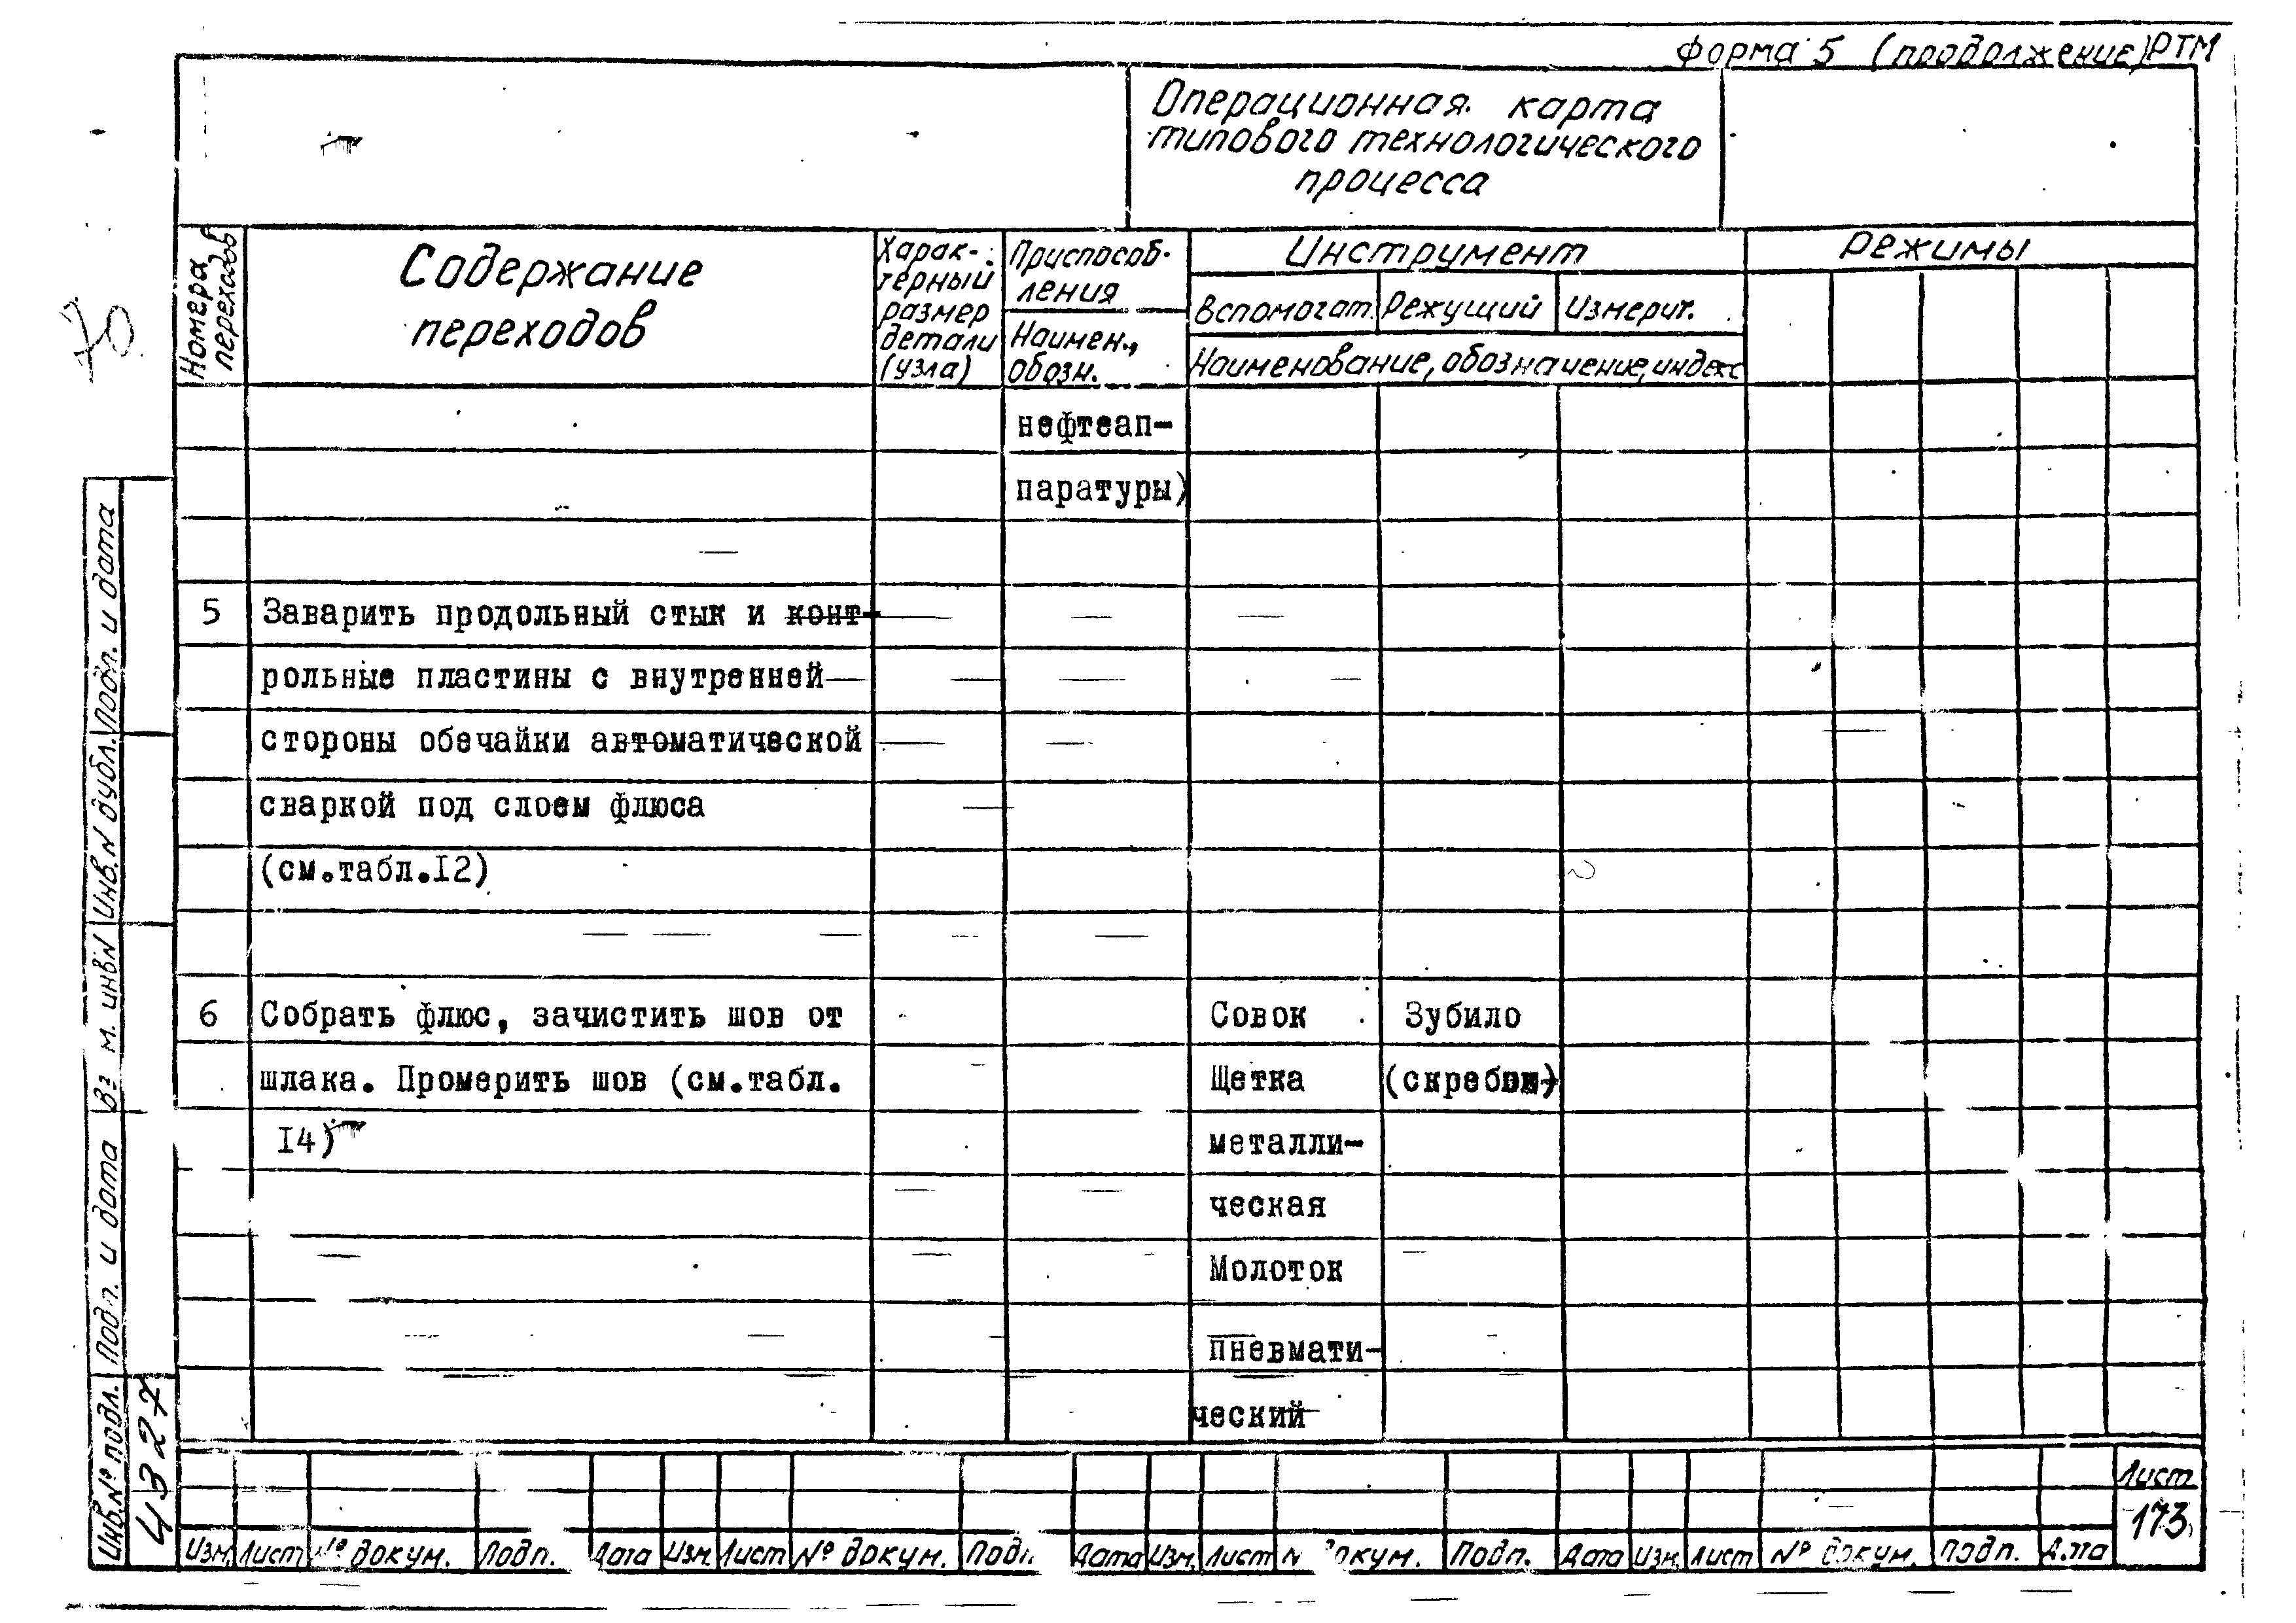 Форма 5 (продолжение) РТМ
Операционная карта
типового технологического
процесса
Номера
переходов
Содержание
переходов
Харак-
терный
размер
детали
(узла)
Приспособ-
ления
Наимен.,
обозн.
Инструмент
Вспомогат. Режущий Измерит.
Наименование, обозначение, индекс
Режимы
нефтеап-
паратуры)
5 Заварить продольный стык и конт-
рольные пластины с внутренней
стороны обечайки автоматической
сваркой под слоем флюса
(см.табл.I2)
6 Собрать флюс, зачистить шов от Совок Зубило
шлака. Промерить шов (см.табл. Щетка (скребок)
I4) металли-
ческая
Молоток
пневмати-
ческий
Подп. и дата
Инв. N дубл.
Вз м. инв N
Подп. и дата
Инв. № подл.
4327
70
Изм. Лист № докум. Подп. Дата Изм. Лист № докум. Подп. Дата Изм. Лист N докум. Подп. Дата Изм. Лист № докум. Подп. Дата
Лист
173